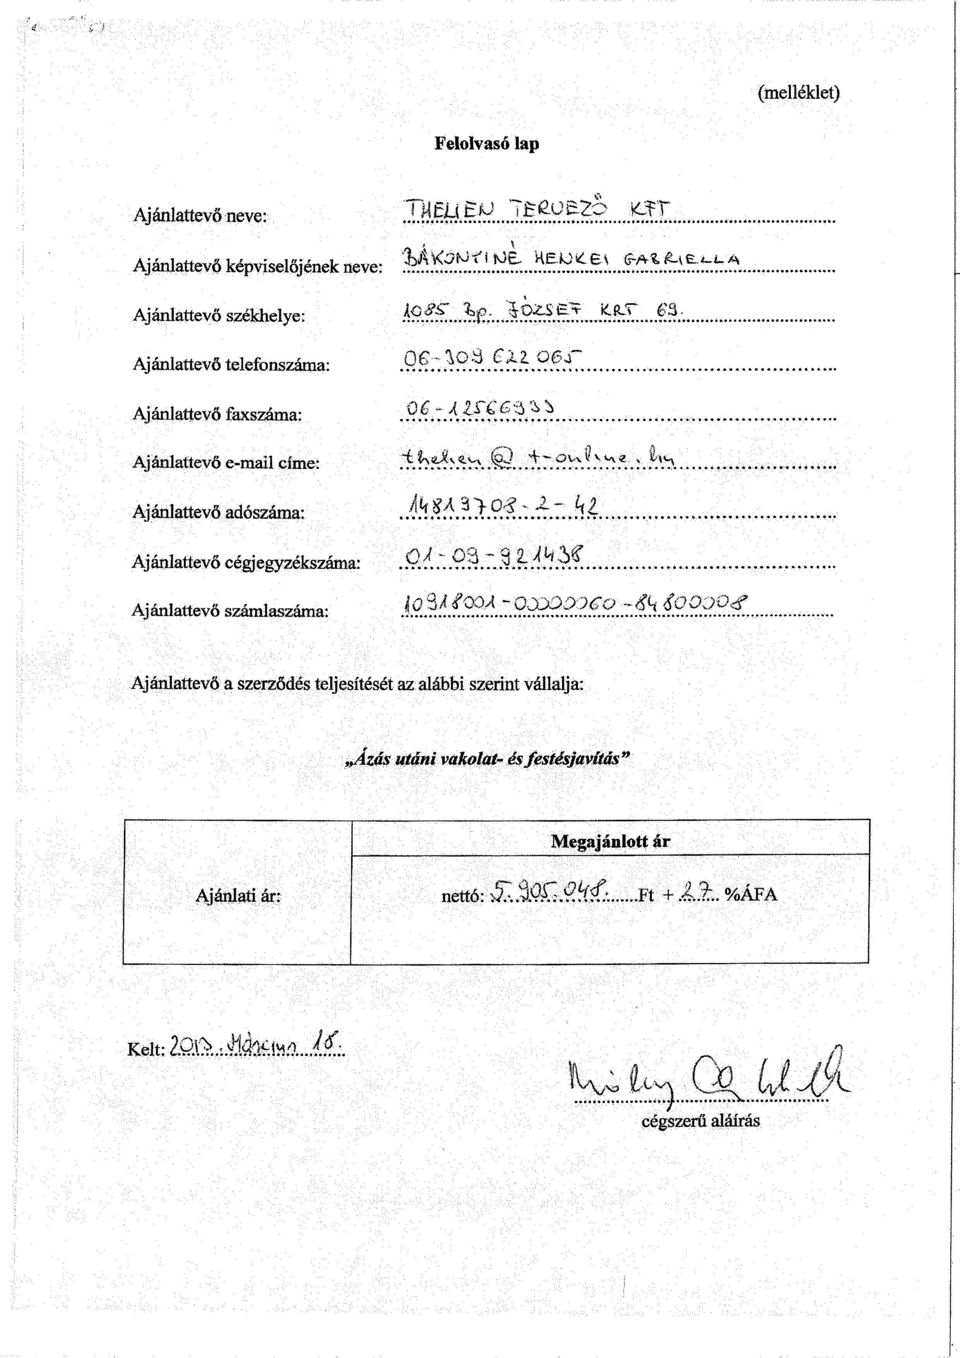 (melléklet)
Felolvasó lap
Ajánlattevő neve: THELIEN TERVEZŐ KFT
Ajánlattevő képviselőjének neve: BÁKONYINÉ HENKEI GABRIELLA
Ajánlattevő székhelye: 1085 Bp. JÓZSEF KRT 69.
Ajánlattevő telefonszáma: 06-309 622 065
Ajánlattevő faxszáma: 06-12566933
Ajánlattevő e-mail címe: thelien @ t-online.hu
Ajánlattevő adószáma: 14813708-2-42
Ajánlattevő cégjegyzékszáma: 01-09-921438
Ajánlattevő számlaszáma: 10918001-00000060-84800008
Ajánlattevő a szerződés teljesítését az alábbi szerint vállalja:
„Ázás utáni vakolat- és festésjavítás”
Megajánlott ár
Ajánlati ár: nettó: 5.905.048.......Ft + 27.. %ÁFA
Kelt: 2013. Március 18.
cégszerű aláírás